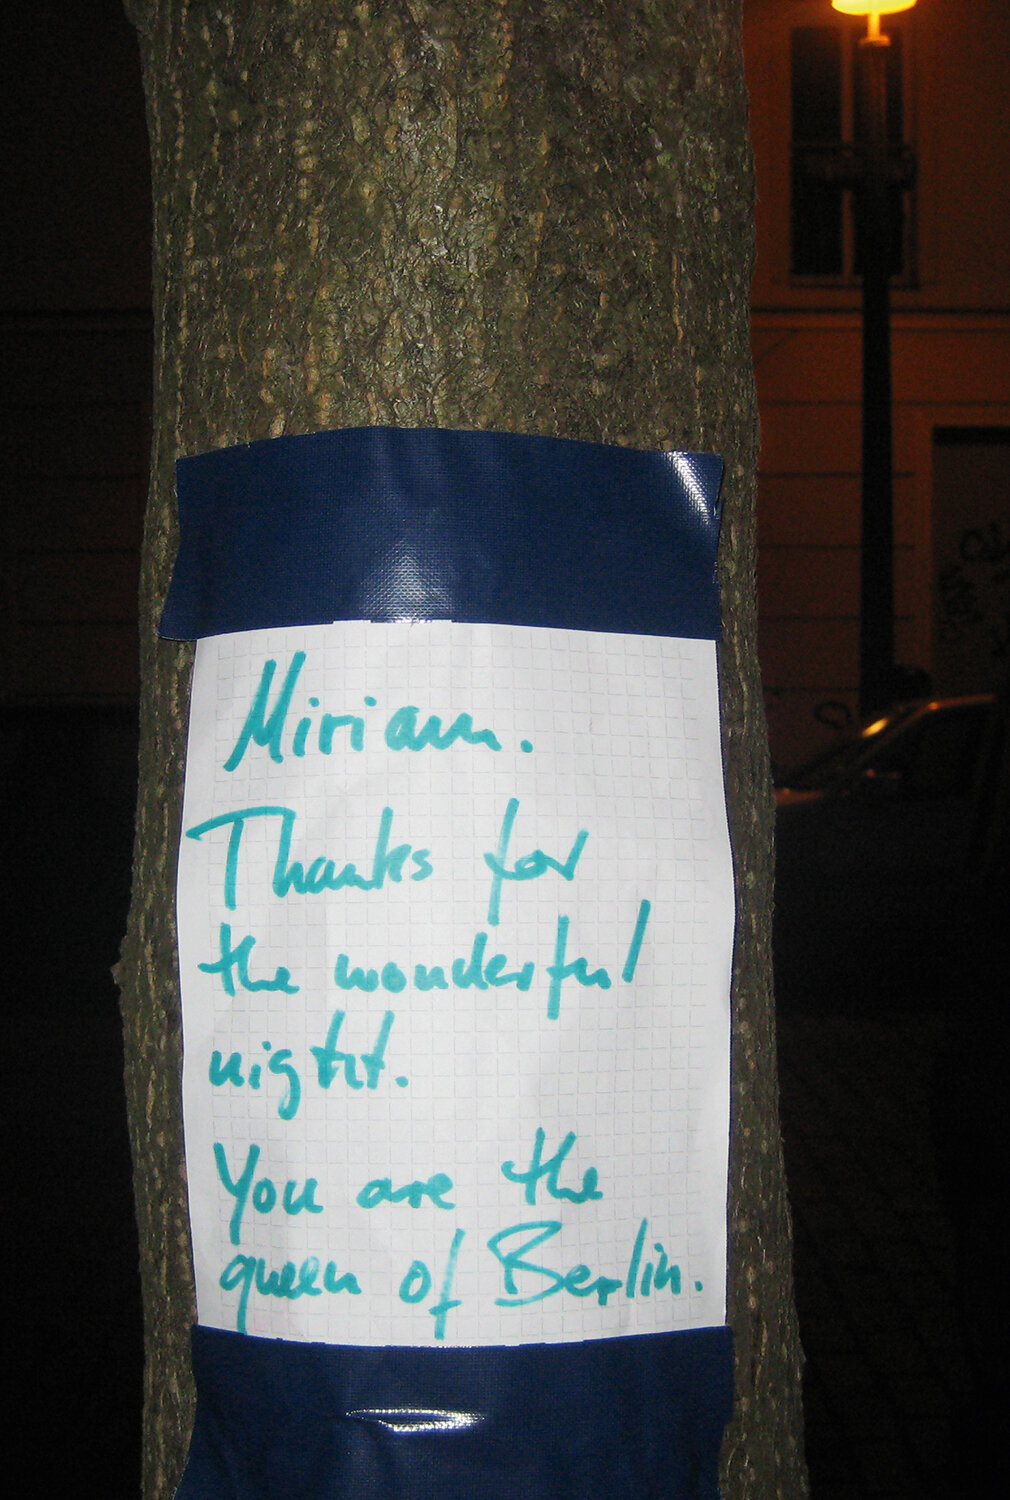 Miriam.
Thanks for
the wonderful
night.
You are the
queen of Berlin.